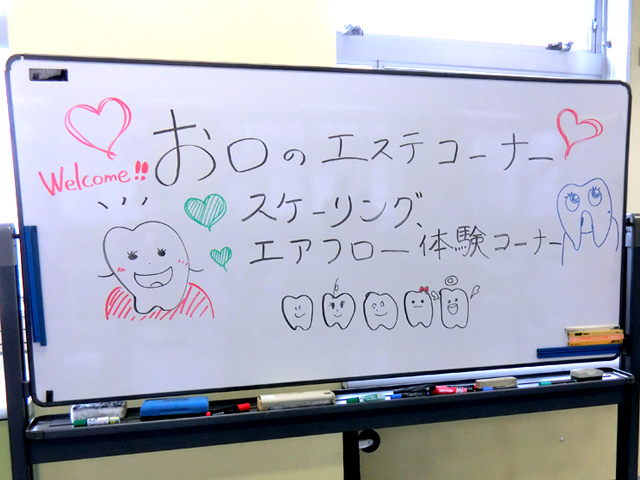 お口のエステコーナー
Welcome!!
スケーリング、
エアフロー体験コーナー